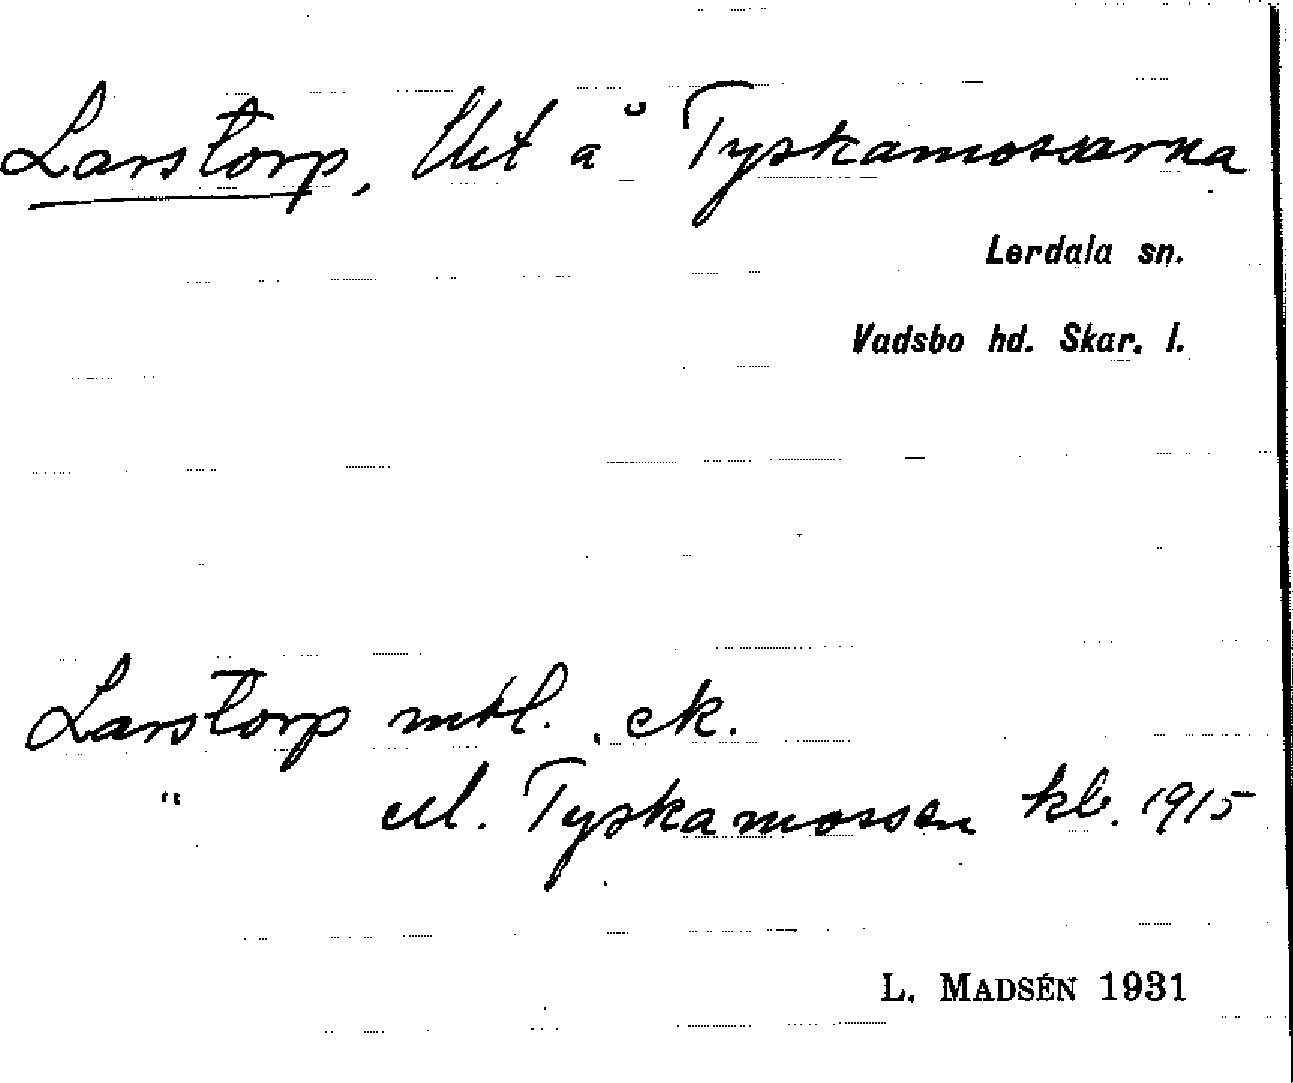 Larstorp, lht å Tyskamossarna
Lerdala sn.
Vadsbo hd. Skar. l.
Larstorp mtl., ek.
" ell. Tyskamossen kb. 1915
L. MADSÉN 1931